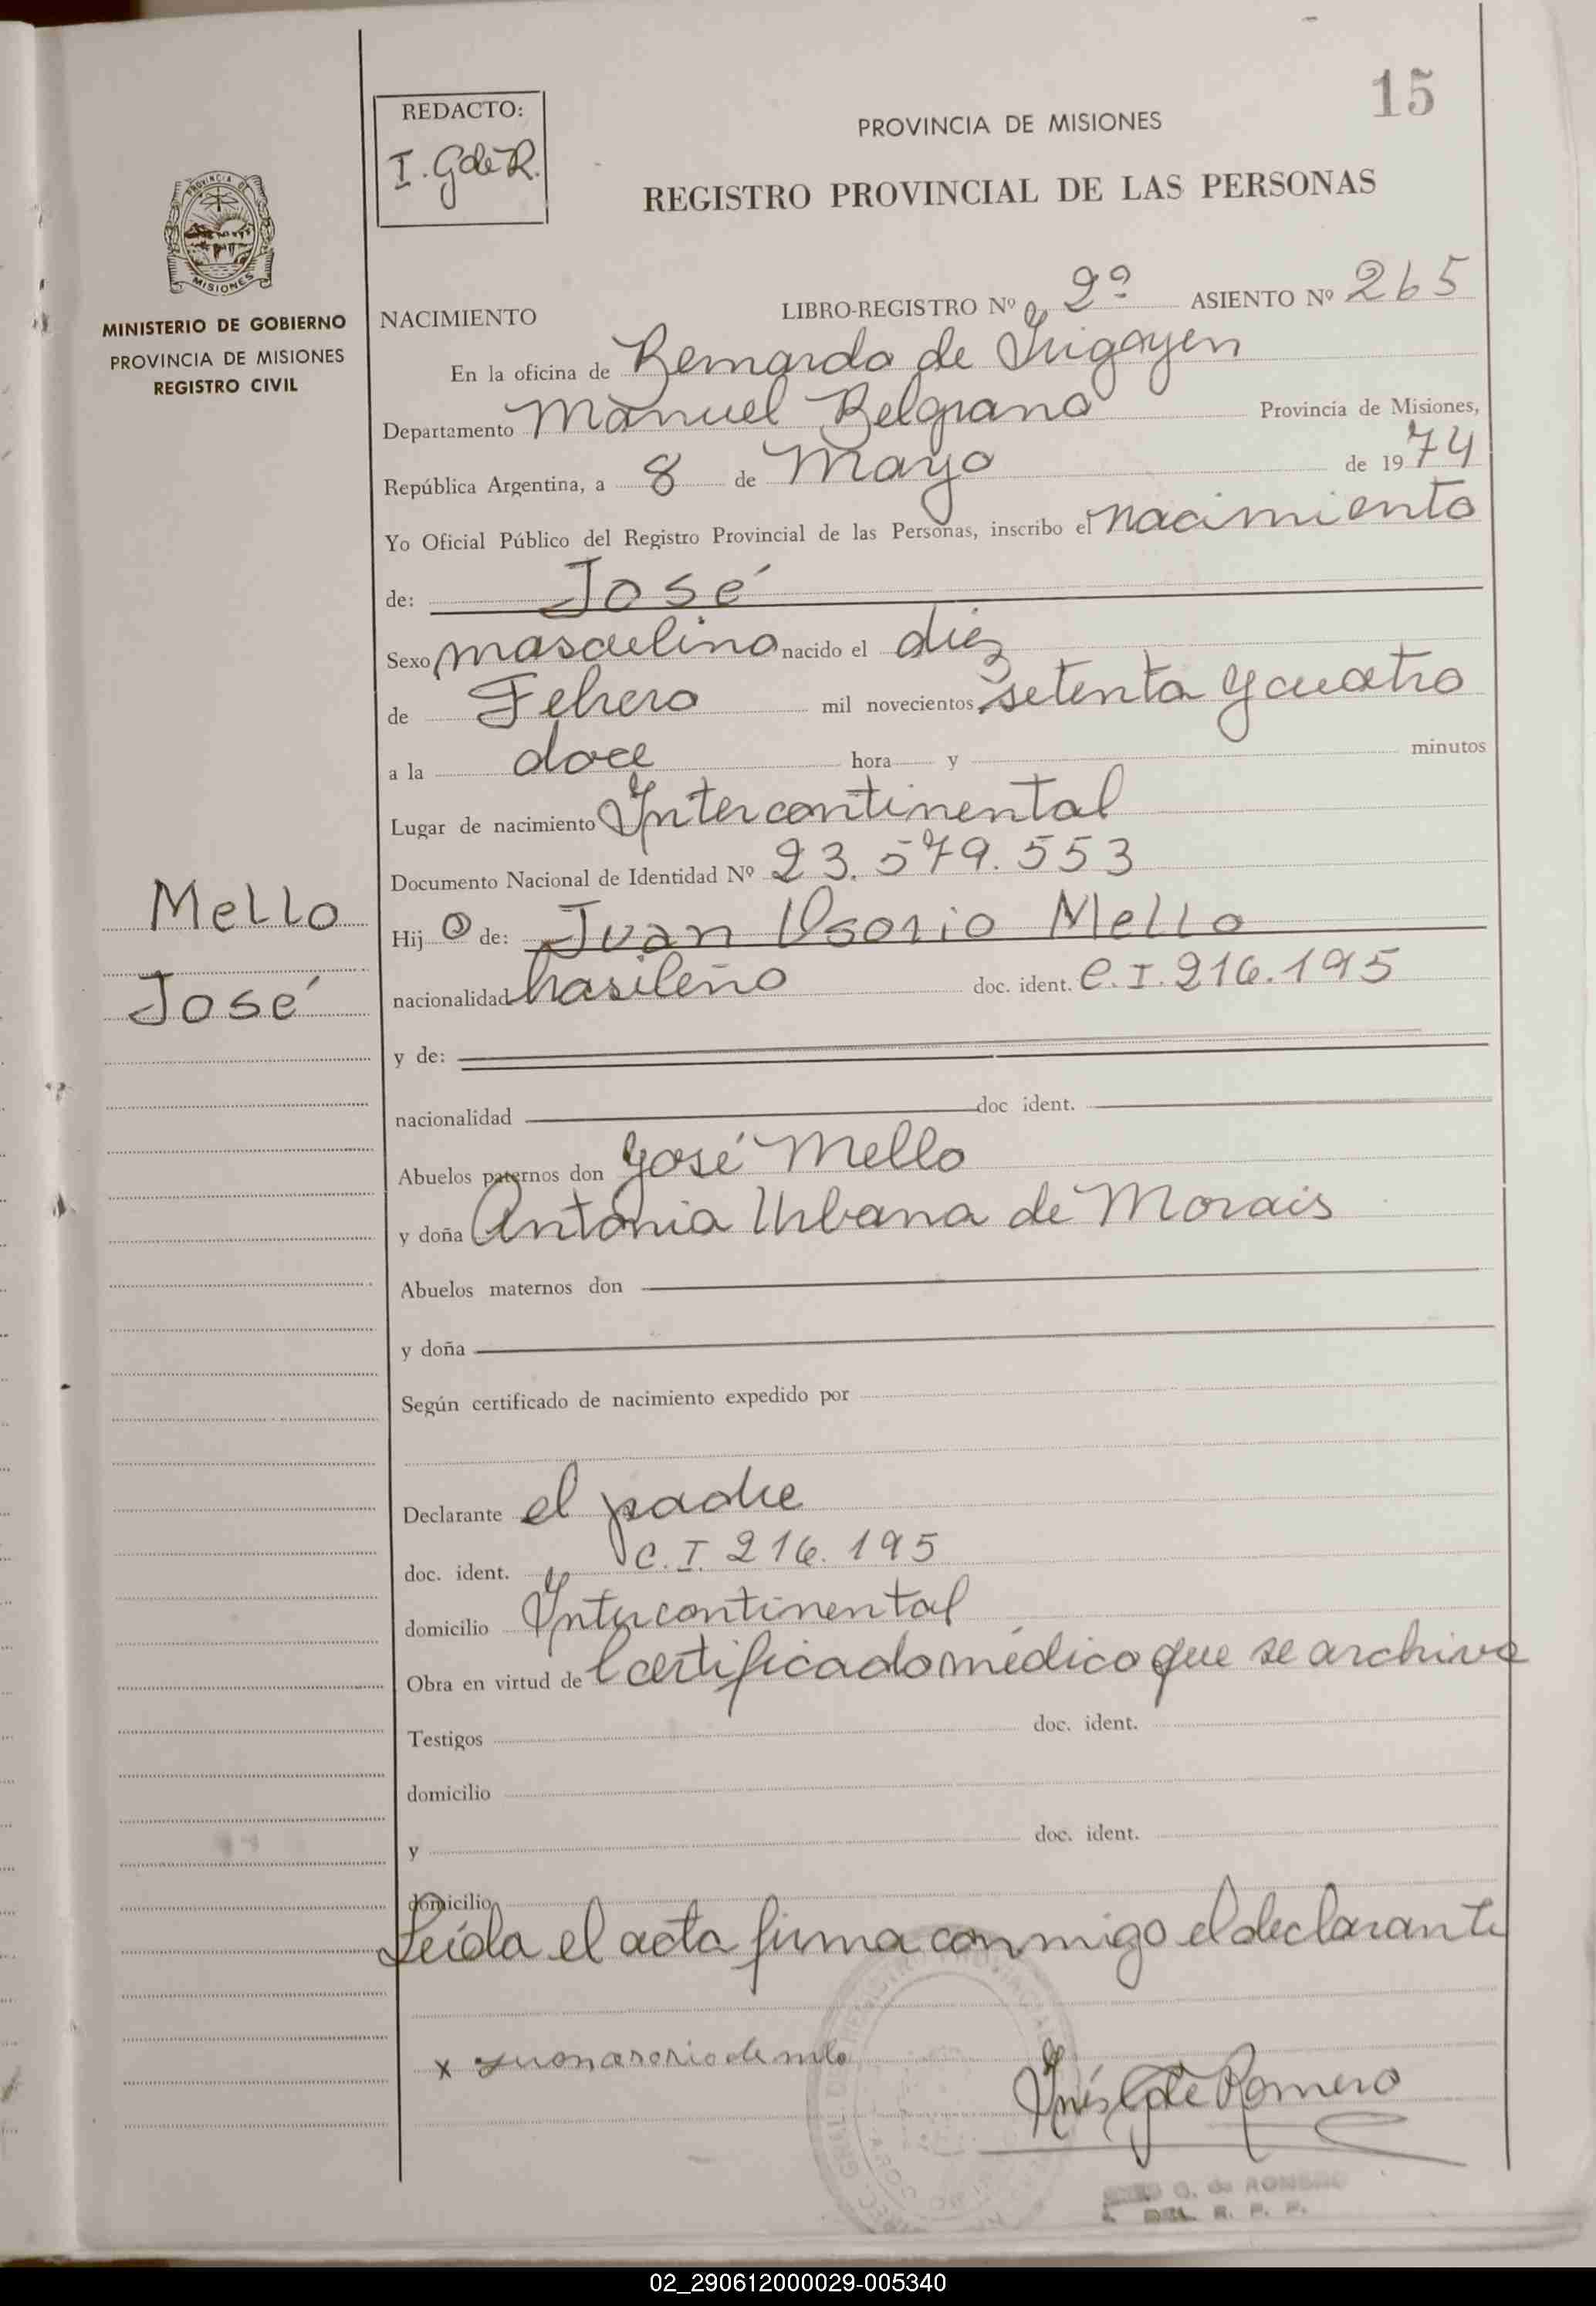 15
REDACTO:
I. G de R.
PROVINCIA DE MISIONES
REGISTRO PROVINCIAL DE LAS PERSONAS
PROVINCIA DE
MISIONES
MINISTERIO DE GOBIERNO
PROVINCIA DE MISIONES
REGISTRO CIVIL
NACIMIENTO LIBRO-REGISTRO Nº 2º ASIENTO Nº 265
En la oficina de Bernardo de Irigoyen
Departamento Manuel Belgrano Provincia de Misiones,
República Argentina, a 8 de Mayo de 1974
Yo Oficial Público del Registro Provincial de las Personas, inscribo el nacimiento
de: José
Sexo masculino nacido el diez
de Febrero mil novecientos setenta y cuatro
a la doce hora y minutos
Lugar de nacimiento Intercontinental
Documento Nacional de Identidad Nº 23.579.553
Mello
Hijo de: Juan Osorio Mello
José
nacionalidad brasileño doc. ident. C.I. 216.195
y de:
nacionalidad doc ident.
Abuelos paternos don José Mello
y doña Antonia Urbana de Morais
Abuelos maternos don
y doña
Según certificado de nacimiento expedido por
Declarante el padre
doc. ident. C.I. 216.195
domicilio Intercontinental
Obra en virtud del certificado médico que se archiva
Testigos doc. ident.
domicilio
y doc. ident.
domicilio
Leída el acta firma conmigo el declarante
x
Inés G de Romero
G. de ROMERO
DEL R. P. P.
02_290612000029-005340